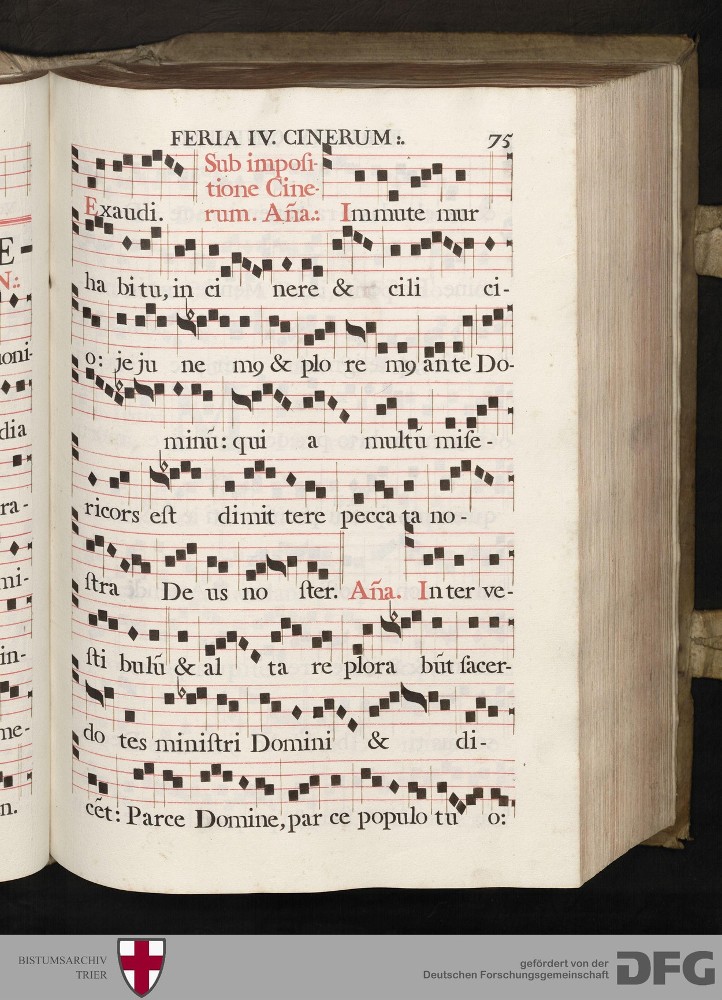 FERIA IV. CINERUM :. 75
Sub impoſi-
tione Cine-
Exaudi. rum. Aña.: Immute mur
ha bi tu, in ci nere & cili ci-
o: je ju ne m9 & plo re m9 an te Do-
minū: qui a multū miſe-
ricors eſt dimit tere pecca ta no-
ſtra De us no ſter. Aña. In ter ve-
ſti bulū & al ta re plora būt ſacer-
do tes miniſtri Domini & di-
cēt: Parce Domine, par ce populo tu o:
E-
N:.
oni-
dia
ra-
mi-
in-
me-
n.
BISTUMSARCHIV
TRIER
gefördert von der
Deutschen Forschungsgemeinschaft
DFG